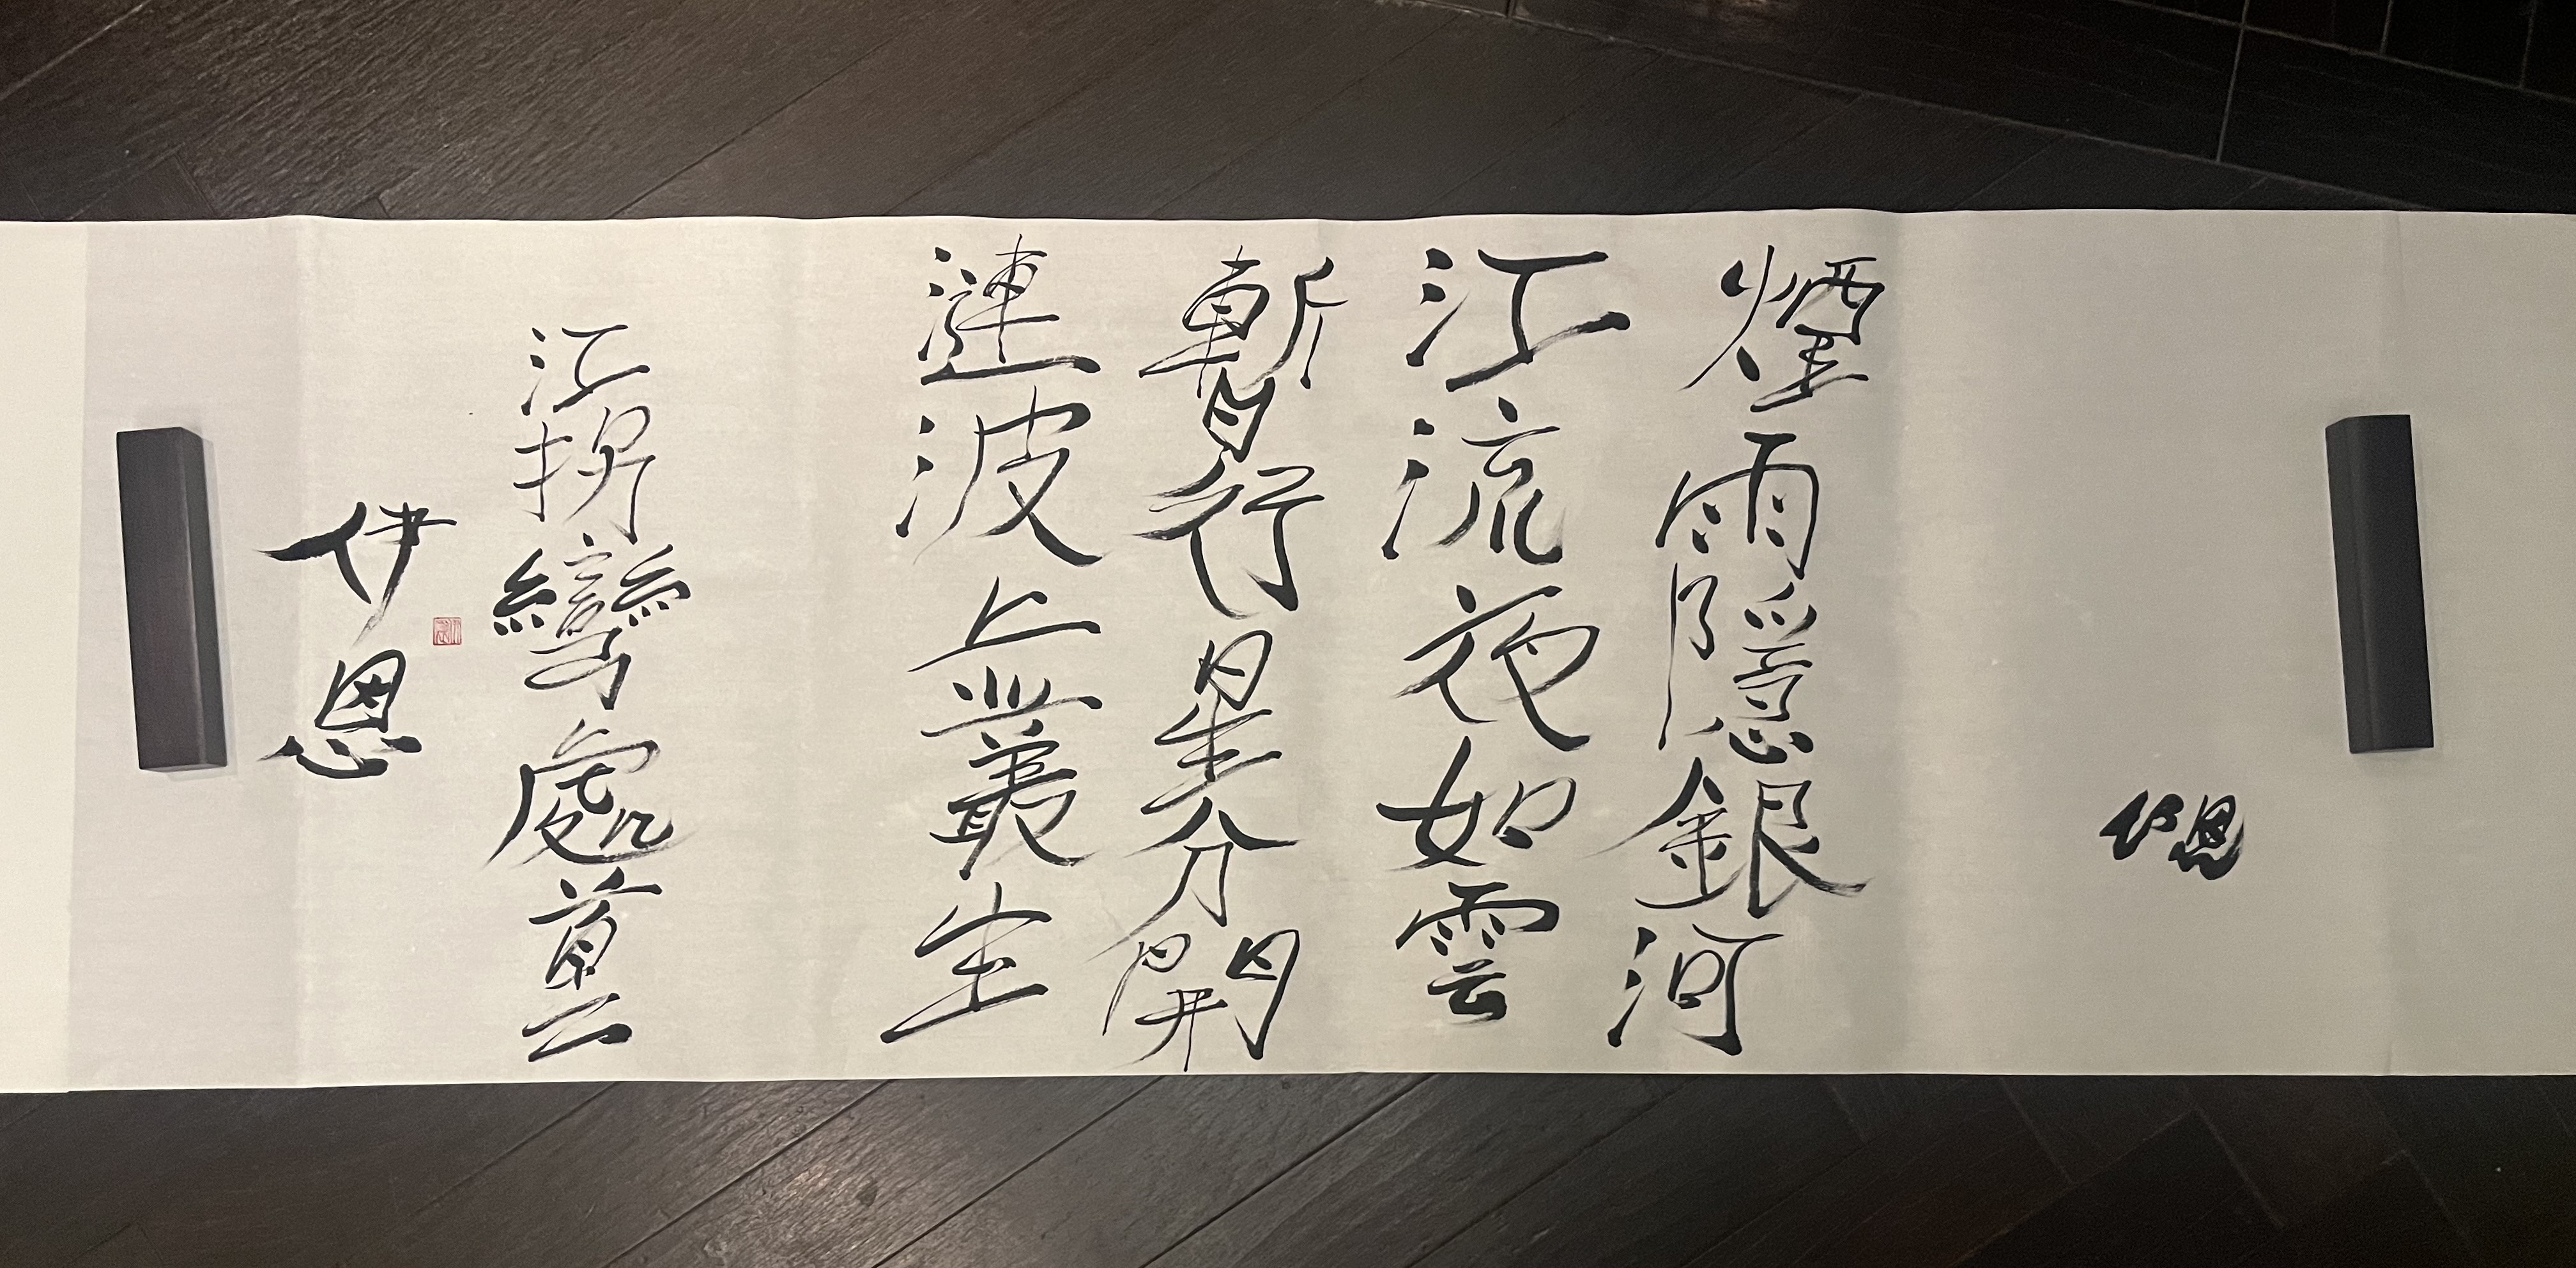 伊恩
煙雨隱銀河
江流夜如雲
暫行星分開
漣波上叢生
江拐彎處
伊恩